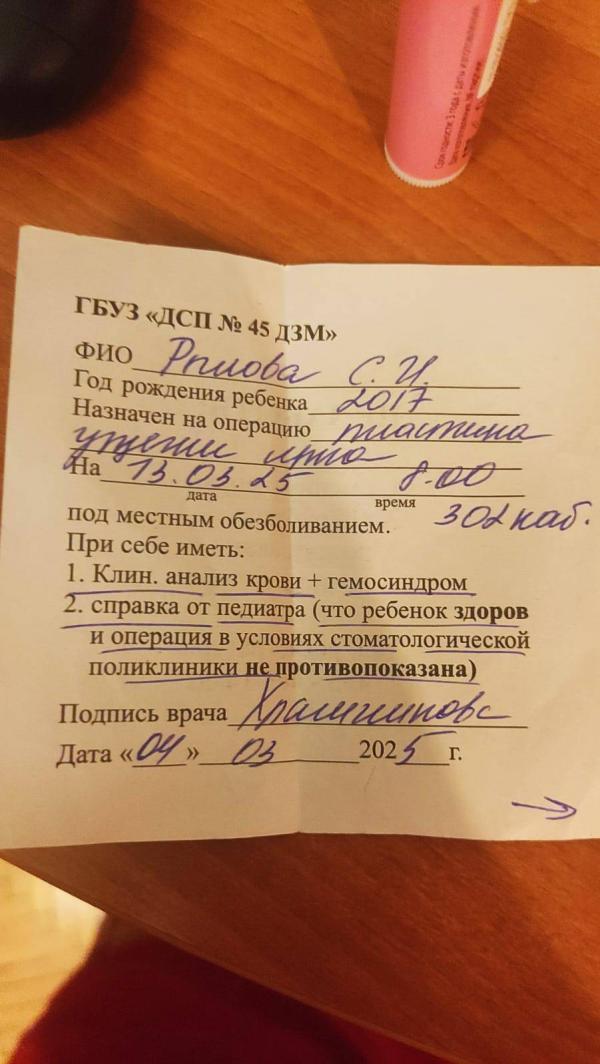 Срок годности: 3 года с даты изготовления.
ГБУЗ «ДСП № 45 ДЗМ»
ФИО С. И.
Год рождения ребенка 2017
Назначен на операцию пластика
На 13.03.25 8-00
дата время
под местным обезболиванием. 302 каб.
При себе иметь:
1. Клин. анализ крови + гемосиндром
2. справка от педиатра (что ребенок здоров
и операция в условиях стоматологической
поликлиники не противопоказана)
Подпись врача
Дата «04» 03 2025 г.